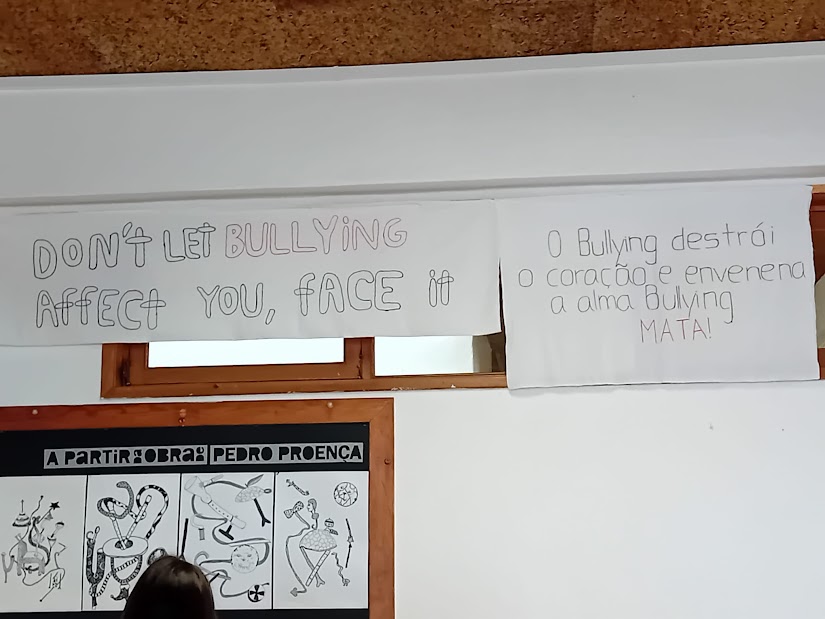 DON'T LET BULLYING
AFFECT YOU, FACE it
O Bullying destrói
o coração e envenena
a alma Bullying
MATA!
A PARTIR DA OBRA DE PEDRO PROENÇA